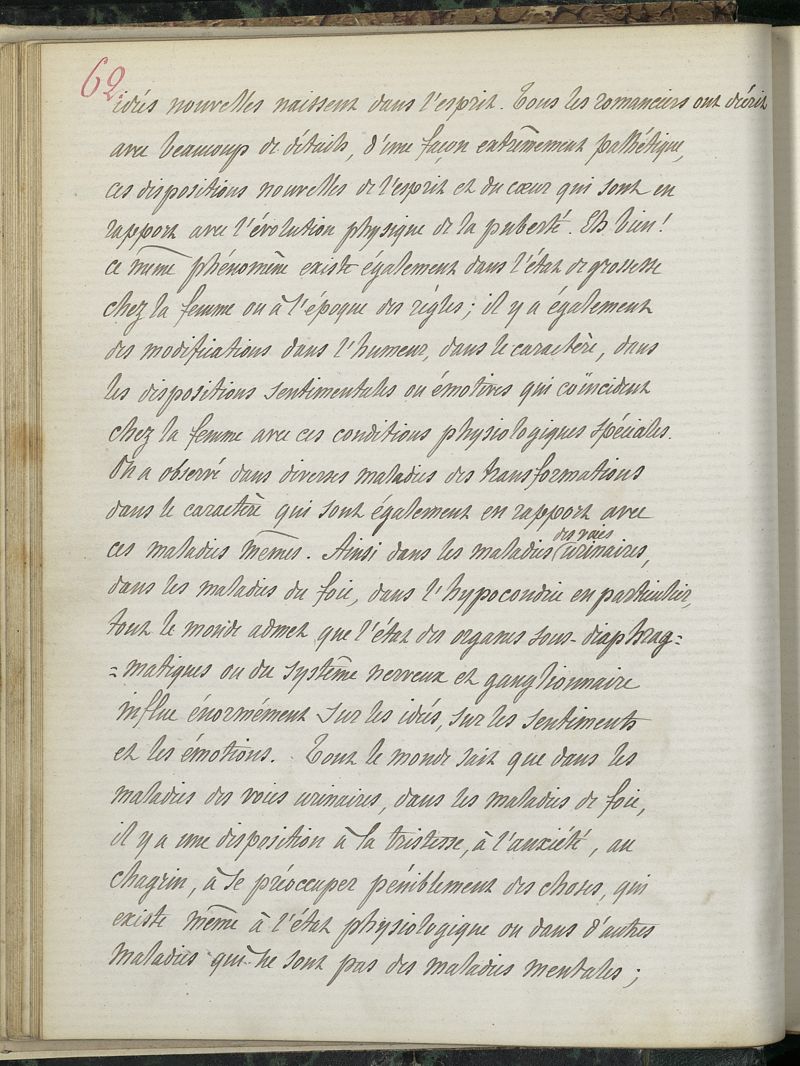 62
idées nouvelles naissent dans l'esprit. Tous les romanciers ont décrit
avec beaucoup de détails, d'une façon extrêmement pathétique,
ces dispositions nouvelles de l'esprit et du cœur qui sont en
rapport avec l'évolution physique de la puberté. Eh bien!
ce même phénomène existe également dans l'état de grossesse
chez la femme ou à l'époque des règles; il y a également
des modifications dans l'humeur, dans le caractère, dans
les dispositions sentimentales ou émotives qui coïncident
chez la femme avec ces conditions physiologiques spéciales.
On a observé dans diverses maladies des transformations
dans le caractère qui sont également en rapport avec
ces maladies mêmes. Ainsi dans les maladies des voies urinaires,
dans les maladies du foie, dans l'hypocondrie en particulier,
tout le monde admet que l'état des organes sous-diaphrag=
=matiques ou du système nerveux et ganglionnaire
influe énormément sur les idées, sur les sentiments
et les émotions. Tout le monde sait que dans les
maladies des voies urinaires, dans les maladies de foie,
il y a une disposition à la tristesse, à l'anxiété, au
chagrin, à se préoccuper péniblement des choses, qui
existe même à l'état physiologique ou dans d'autres
maladies qui ne sont pas des maladies mentales;